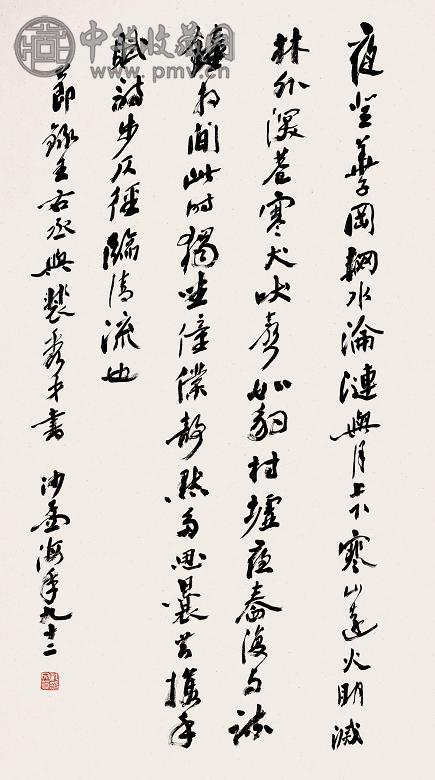 夜登華子岡輞水淪漣與月上下寒山遠火明滅
林外深巷寒犬吠聲如豹村墟夜舂復與疏
鐘相間此時獨坐僮僕靜默多思曩昔攜手
賦詩步仄徑臨清流也
節錄王右丞與裴秀才書 沙孟海年九十二
中华收藏网
www.pmv.cn